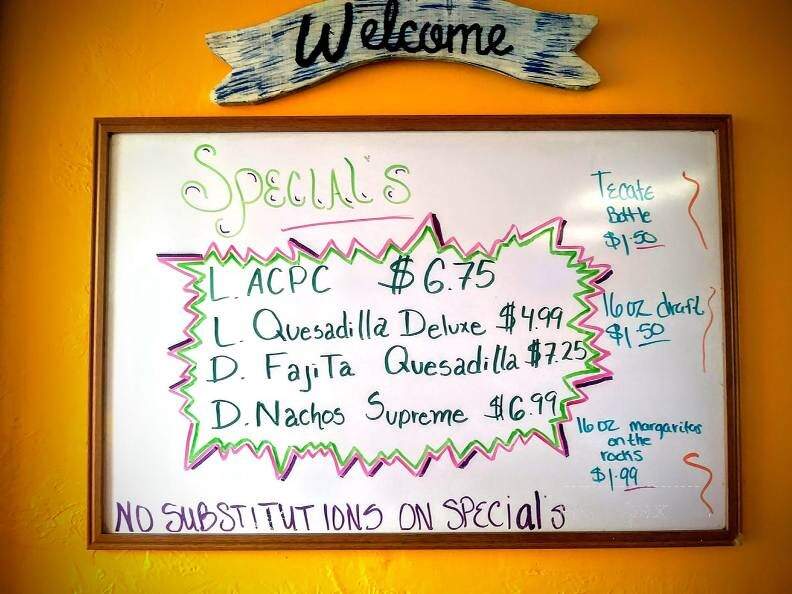 Welcome
Special's
L. ACPC $6.75
L. Quesadilla Deluxe $4.99
D. Fajita Quesadilla $7.25
D. Nachos Supreme $6.99
Tecate
Bottle
$1.50
16 oz draft
$1.50
16 oz margaritas
on the
rocks
$1.99
NO SUBSTITUTIONS ON SPECIal's